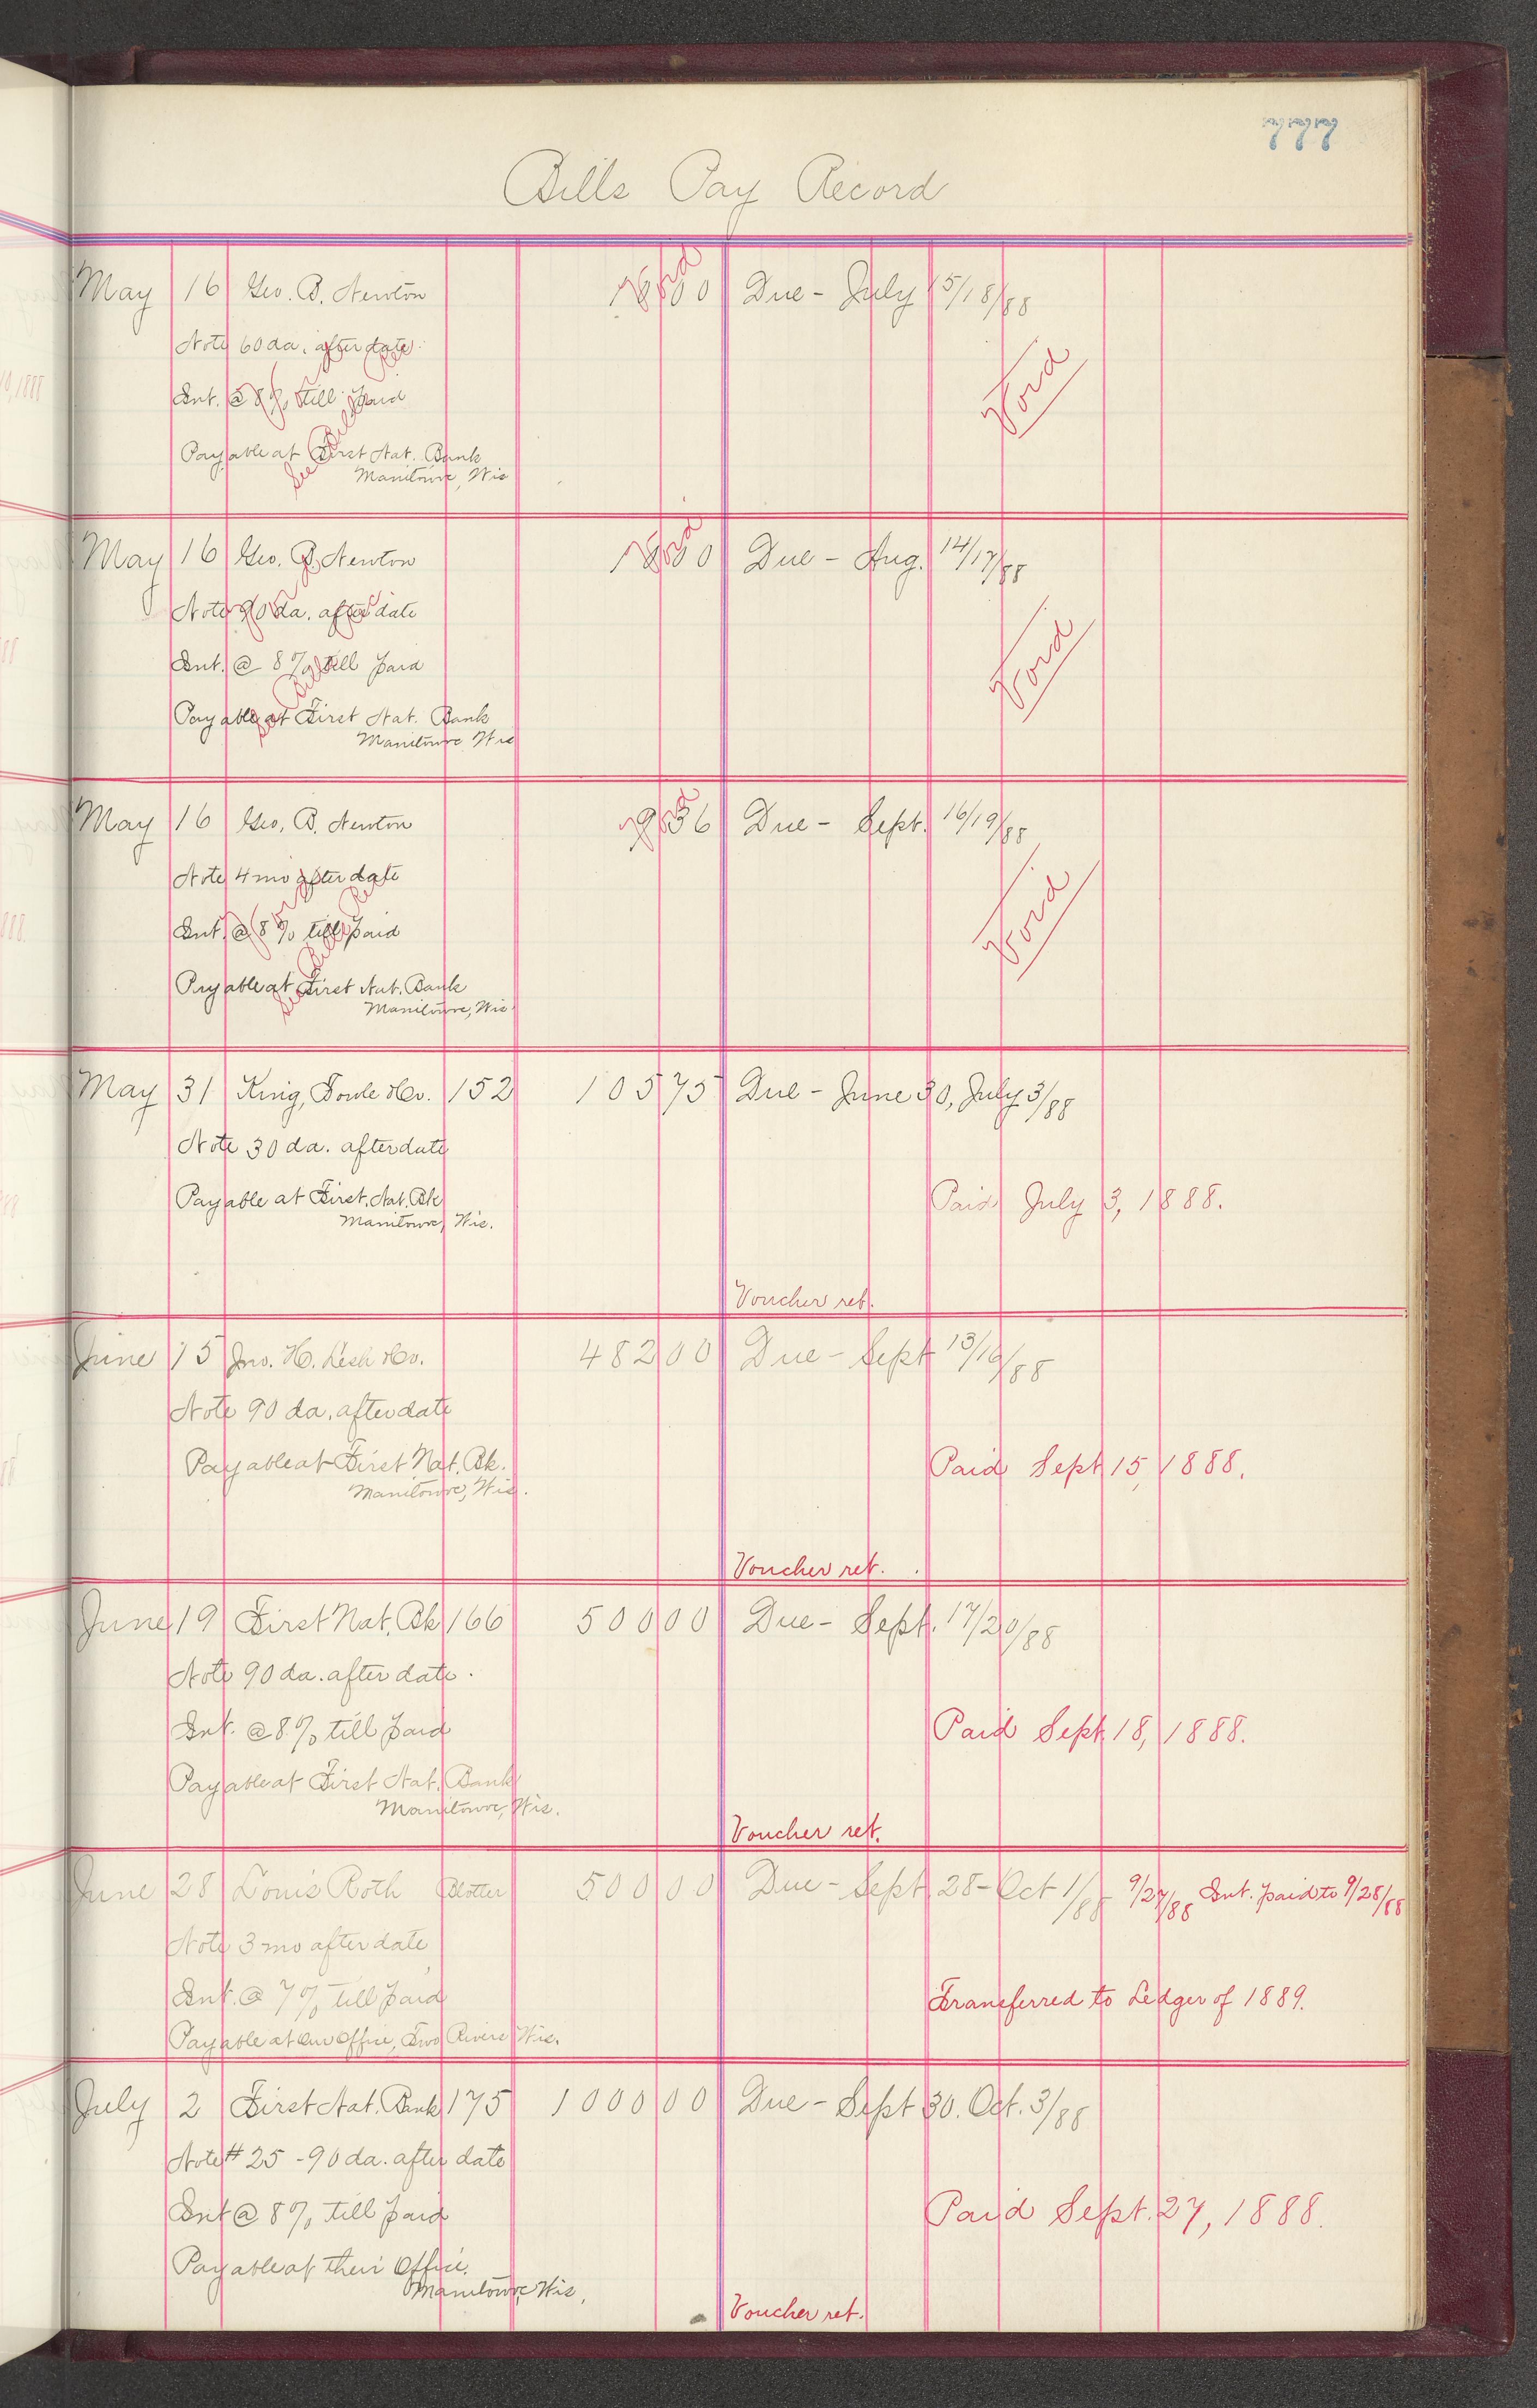 777
Bills Pay Record
May 16 Geo. B. Newton 1000 Due - July 15/18/88
Note 60 da. after date
Int. @ 8% till paid
Void
Payable at First Nat. Bank
Manitowoc, Wis
May 16 Geo. B. Newton 1000 Due - Aug. 14/17/88
Note 90 da. after date
Int. @ 8% till paid
Void
Payable at First Nat. Bank
Manitowoc Wis
May 16 Geo. B. Newton 936 Due - Sept. 16/19/88
Note 4 mo after date
Int. @ 8% till paid
Void
Payable at First Nat. Bank
Manitowoc, Wis
May 31 King, Fowle & Co. 152 105 75 Due - June 30, July 3/88
Note 30 da. after date
Payable at First. Nat. Bk Paid July 3, 1888.
Manitowoc, Wis.
Voucher ret.
June 15 Jno. H. Lesh & Co. 482 00 Due - Sept 13/16/88
Note 90 da. after date
Payable at First Nat. Bk. Paid Sept 15, 1888.
Manitowoc, Wis.
Voucher ret.
June 19 First Nat. Bk 166 500 00 Due - Sept. 17/20/88
Note 90 da. after date.
Int. @ 8% till paid Paid Sept 18, 1888.
Payable at First Nat. Bank
Manitowoc, Wis.
Voucher ret.
June 28 Louis Roth Blotter 500 00 Due - Sept 28 - Oct 1/88 - 9/27/88 Int. paid to 9/28/88
Note 3 mo after date
Int. @ 7% till paid Transferred to Ledger of 1889.
Payable at Our Office, Two Rivers Wis.
July 2 First Nat. Bank 175 1000 00 Due - Sept 30. Oct. 3/88
Note # 25 - 90 da. after date
Int @ 8% till paid Paid Sept. 27, 1888.
Payable at their Office.
Manitowoc Wis.
Voucher ret.